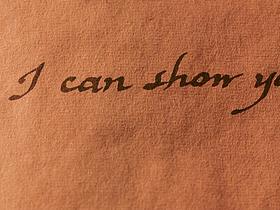 I can show yo